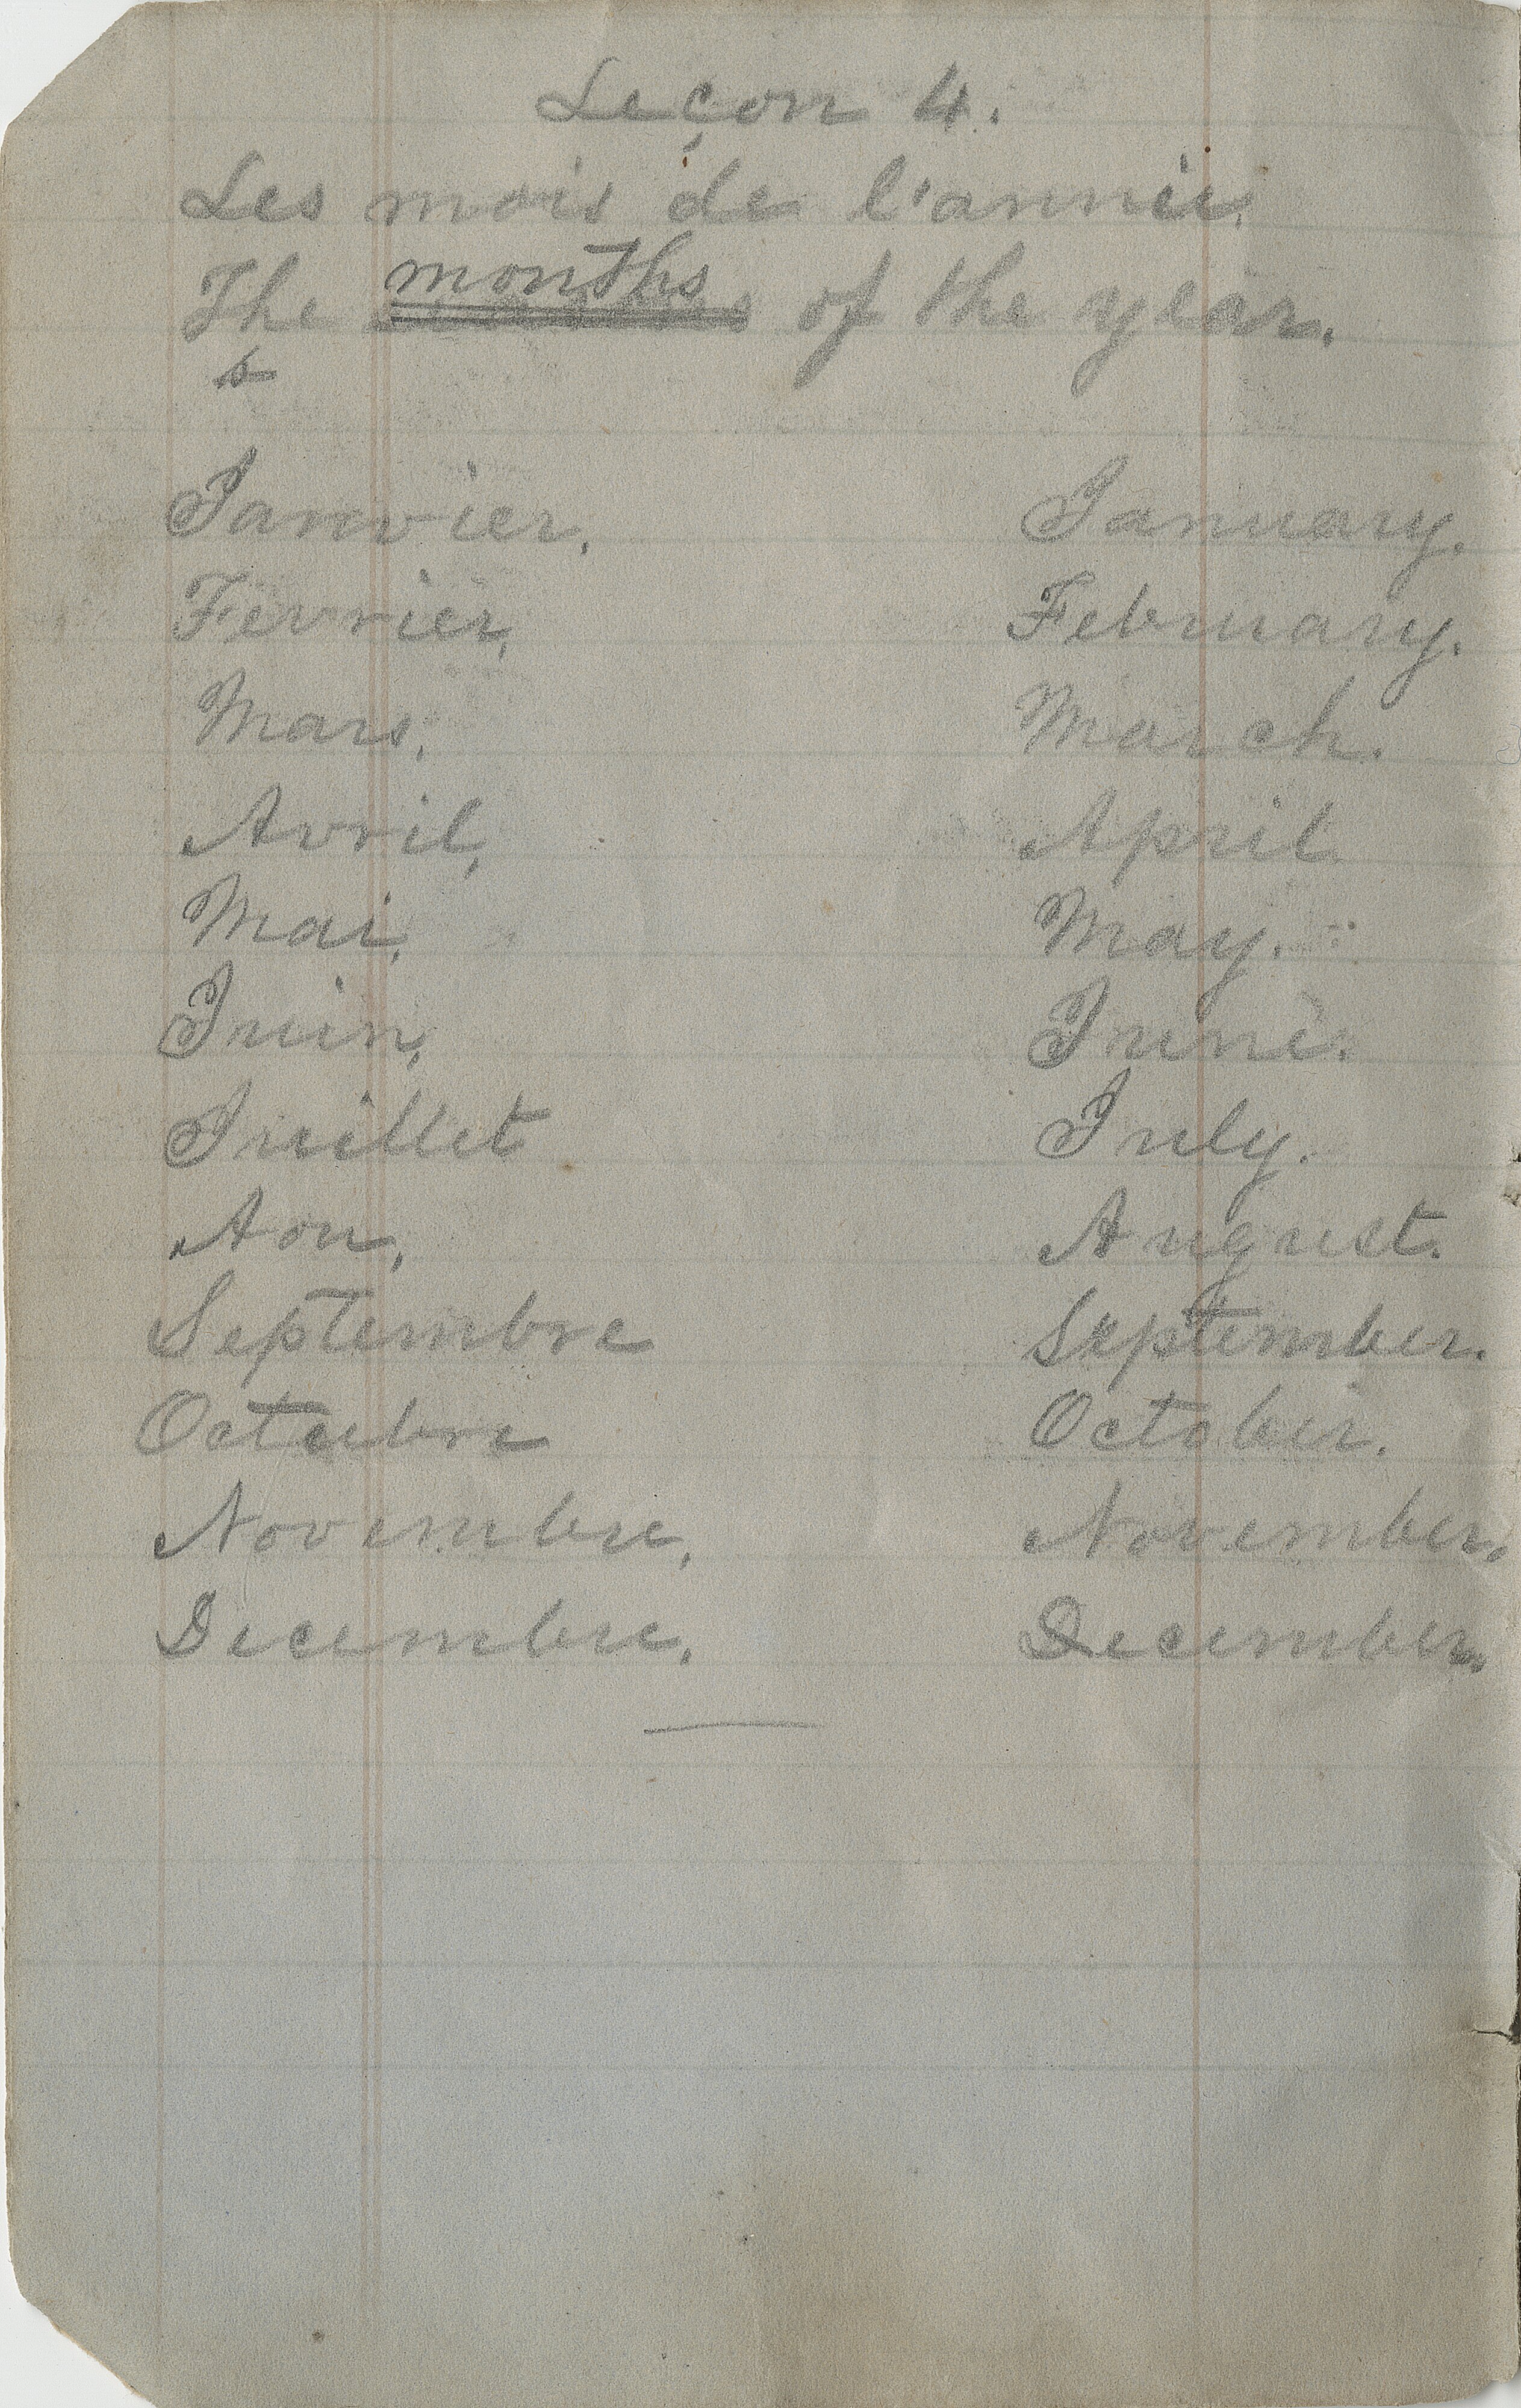 Leçon 4.
Les mois de l'année.
The months of the year.
s
Janvier, January.
Fevrier, February.
Mars, March.
Avril, April.
Mai, May.
Juin, June.
Juillet July.
Aou, August.
Septembre September.
Octubre October.
Novembre, November.
Decembre, December.